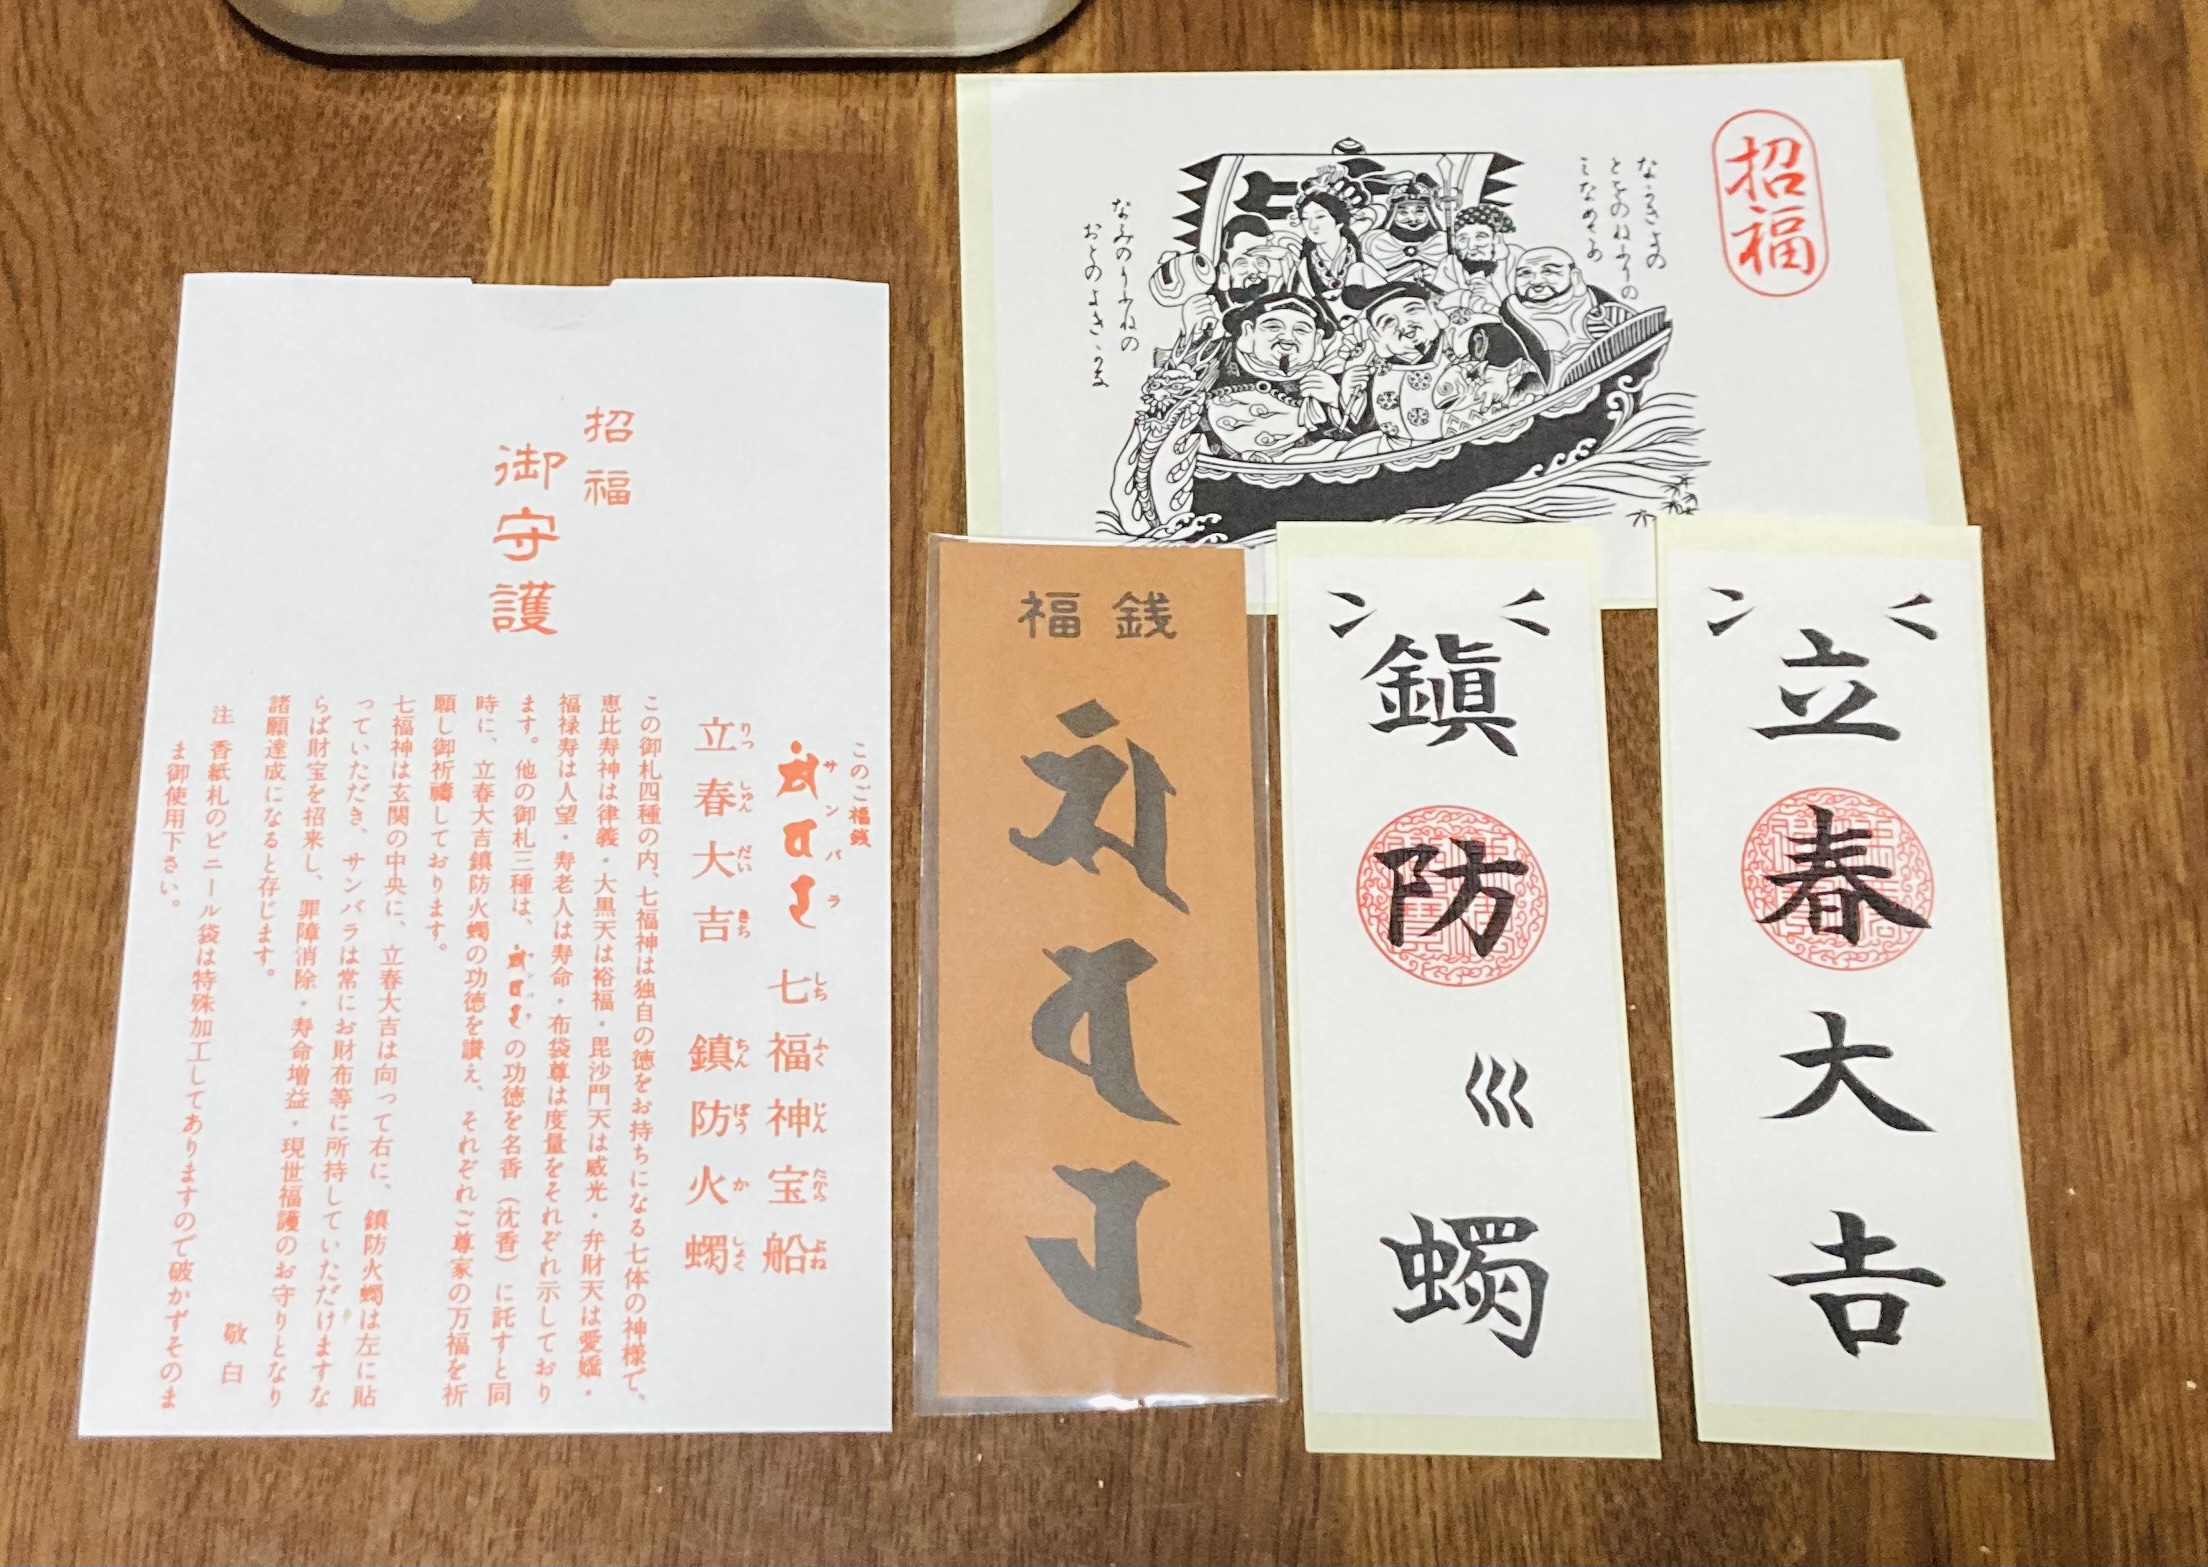 招福
御守護
このご福銭
サンバラ 七福神宝船
しちふくじんたからぶね
立春大吉 鎮防火蠋
りっしゅんだいきち ちんぼうかしょく
この御札四種の内、七福神は独自の徳をお持ちになる七体の神様で、
恵比寿神は律義・大黒天は裕福・毘沙門天は威光・弁財天は愛嬌・
福禄寿は人望・寿老人は寿命・布袋尊は度量をそれぞれ示しており
ます。他の御札三種は、サンバラの功徳を名香（沈香）に託すと同
時に、立春大吉鎮防火蠋の功徳を讃え、それぞれご尊家の万福を祈
願し御祈禱しております。
七福神は玄関の中央に、立春大吉は向って右に、鎮防火蠋は左に貼
っていただき、サンバラは常にお財布等に所持していただけますな
らば財宝を招来し、罪障消除・寿命増益・現世福護のお守りとなり
諸願達成になると存じます。
敬白
注 香紙札のビニール袋は特殊加工してありますので破かずそのま
ま御使用下さい。
招福
なかきよの
とをのねふりの
みなめさめ
なみのりふねの
おとのよきかな
福銭
鎭防巛蠋
立春大吉